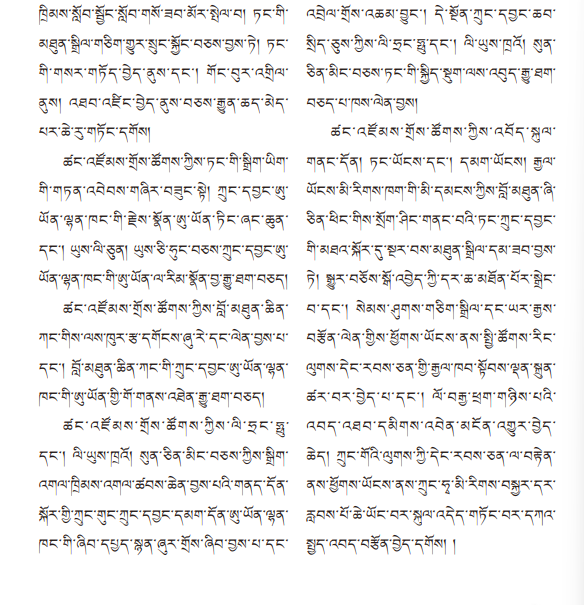 ཁྲིམས་སློབ་སྦྱོང་སློབ་གསོ་ཟབ་མོར་སྤེལ་བ། ཏང་གི་
མཐུན་སྒྲིལ་གཅིག་གྱུར་སྲུང་སྐྱོང་བཅས་བྱས་ཏེ། ཏང་
གི་གསར་གཏོད་བྱེད་ནུས་དང་། གོང་བུར་འགྲིལ་
ནུས། འཐབ་འཛིང་བྱེད་ནུས་བཅས་རྒྱུན་ཆད་མེད་
པར་ཆེ་རུ་གཏོང་དགོས།
ཚང་འཛོམས་གྲོས་ཚོགས་ཀྱིས་ཏང་གི་སྒྲིག་ཡིག་
གི་གཏན་འབེབས་གཞིར་བཟུང་སྟེ། ཀྲུང་དབྱང་ཨུ་
ཡོན་ལྷན་ཁང་གི་རྗེས་སྣོན་ཨུ་ཡོན་ཏིང་ཞང་ཆུན་
དང་། ཡུས་ལི་ཅུན། ཡུས་ཅི་ཧུང་བཅས་ཀྲུང་དབྱང་ཨུ་
ཡོན་ལྷན་ཁང་གི་ཨུ་ཡོན་ལ་རིམ་སྣོན་བྱ་རྒྱུ་ཐག་བཅད།
ཚང་འཛོམས་གྲོས་ཚོགས་ཀྱིས་བློ་མཐུན་ཆིན་
ཀང་གིས་ལས་ཁུར་རྩ་དགོངས་ཞུ་རེ་དང་ལེན་བྱས་པ་
དང་། བློ་མཐུན་ཆིན་ཀང་གི་ཀྲུང་དབྱང་ཨུ་ཡོན་ལྷན་
ཁང་གི་ཨུ་ཡོན་གྱི་གོ་གནས་འཐེན་རྒྱུ་ཐག་བཅད།
ཚང་འཛོམས་གྲོས་ཚོགས་ཀྱིས་ལི་ཧྲང་ཧྥུ་
དང་། ལི་ཡུས་ཁྲའོ། སུན་ཅིན་མིང་བཅས་ཀྱིས་སྒྲིག་
འགལ་ཁྲིམས་འགལ་ཚབས་ཆེན་བྱས་པའི་གནད་དོན་
སྐོར་གྱི་ཀྲུང་གུང་ཀྲུང་དབྱང་དམག་དོན་ཨུ་ཡོན་ལྷན་
ཁང་གི་ཞིབ་དཔྱད་སྙན་ཞུར་གྲོས་ཞིབ་བྱས་པ་དང་
འབྲེལ་གྲོས་འཆམ་བྱུང་། དེ་སྔོན་ཀྲུང་དབྱང་ཆབ་
སྲིད་ཅུས་ཀྱིས་ལི་ཧྲང་ཧྥུ་དང་། ལི་ཡུས་ཁྲའོ། སུན་
ཅིན་མིང་བཅས་ཏང་གི་སྐྱིད་སྡུག་ལས་འབུད་རྒྱུ་ཐག་
བཅད་པ་ཁས་ལེན་བྱས།
ཚང་འཛོམས་གྲོས་ཚོགས་ཀྱིས་འབོད་སྐུལ་
གནང་དོན། ཏང་ཡོངས་དང་། དམག་ཡོངས། རྒྱལ་
ཡོངས་མི་རིགས་ཁག་གི་མི་དམངས་ཀྱིས་བློ་མཐུན་ཞི་
ཅིན་ཕིང་གིས་སྲོག་ཤིང་གནང་བའི་ཏང་ཀྲུང་དབྱང་
གི་མཐའ་སྐོར་དུ་སྔར་བས་མཐུན་སྒྲིལ་དམ་ཟབ་བྱས་
ཏེ། སྒྱུར་བཅོས་སྒོ་འབྱེད་ཀྱི་དར་ཆ་མཐོན་པོར་སྒྲེང་
བ་དང་། སེམས་ཤུགས་གཅིག་སྒྲིལ་དང་ཡར་རྒྱས་
བརྩོན་ལེན་གྱིས་ཕྱོགས་ཡོངས་ནས་སྤྱི་ཚོགས་རིང་
ལུགས་དེང་རབས་ཅན་གྱི་རྒྱལ་ཁབ་སྟོབས་ལྡན་སྒྲུན་
ཚར་བར་བྱེད་པ་དང་། ལོ་བརྒྱ་ཕྲག་གཉིས་པའི་
འབད་འཐབ་དམིགས་འབེན་མངོན་འགྱུར་བྱེད་
ཆེད། ཀྲུང་གོའི་ལུགས་ཀྱི་དེང་རབས་ཅན་ལ་བརྟེན་
ནས་ཕྱོགས་ཡོངས་ནས་ཀྲུང་ཧྭ་མི་རིགས་བསྐྱར་དར་
རླབས་པོ་ཆེ་ཡོང་བར་སྐུལ་འདེད་གཏོང་བར་དཀའ་
སྤྱད་འབད་བརྩོན་བྱེད་དགོས། །